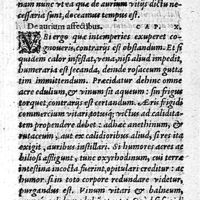 nam nunc vt ea quæ de aurium vitijs dictu ne-
cessaria sunt, doceamus tempus est.
De aurium affectibus. CAP. X.
VBi ergo quæ intemperies exuperet co-
gnoueris, contrarijs est obstandum. Et si
quidem calor infestat, vena, nisi aliud impediat,
humeraria est secanda, deinde rosaceum gutta
tim immittendum. Præcidatur debinc omne
acre edulium, & vinum sit aqueum: sin frigus
torquet, contrarijs est certandum. Aëris frigidi
commercium vitari, potusq; victus ac odoratus
propendere debet: adhæc anethinum, &
rutaceum, aut ex calidioribus alium, si res ita
exigit, auribus instillari. Si humores acres ac
biliosi affligunt, tunc oxyrrhodinum, cui terræ
intestina incocta fuerint, optulari creditur: ac
humor, si in toto corpore redundare videtur,
purgandus est. Vinum vitari & balneum,